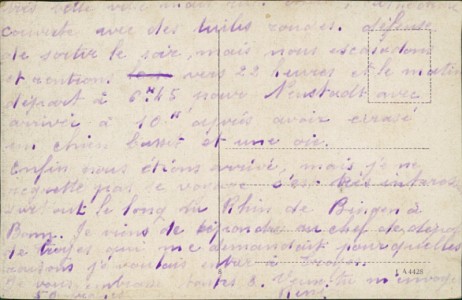 très cette
couverte avec des tuiles rondes. défense
de sortir le soir, mais nous escaladons
et rentrons vers 22 heures et le matin
départ à 6h45 pour Neustadt avec
arrivée à 10h après avoir écrasé
un chien basset et une oie.
Enfin nous étions arrivé, mais je ne
regrette pas le voyage c'est très intéres
surtout le long du Rhin de Bingen à
Bonn. Je viens de répondre au chef de dépôt
de Troyes qui me demandait pour quelles
raisons je voulais entrer à
Je vous embrasse toutes 3. tu m'envoye
50
René
A 4428